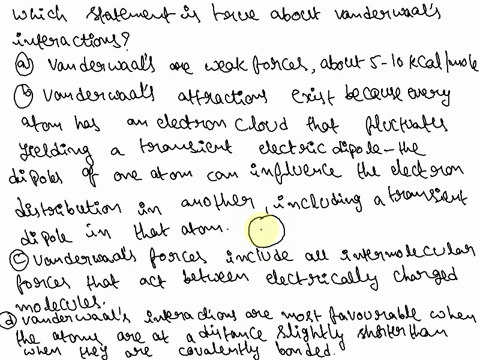 which statement is true about vanderwaal's
interactions?
(a) vanderwaal's are weak forces, about 5-10 kcal/mole
(b) vanderwaal's attractions exist because every
atom has an electron cloud that fluctuates
yielding a transient electric dipole - the
dipoles of one atom can influence the electron
distribution in another, including a transient
dipole in that atom.
(c) vanderwaal's forces include all intermolecular
forces that act between electrically charged
molecules.
(d) vanderwaal's interactions are most favourable when
the atoms are at a distance slightly shorter than
when they are covalently bonded.